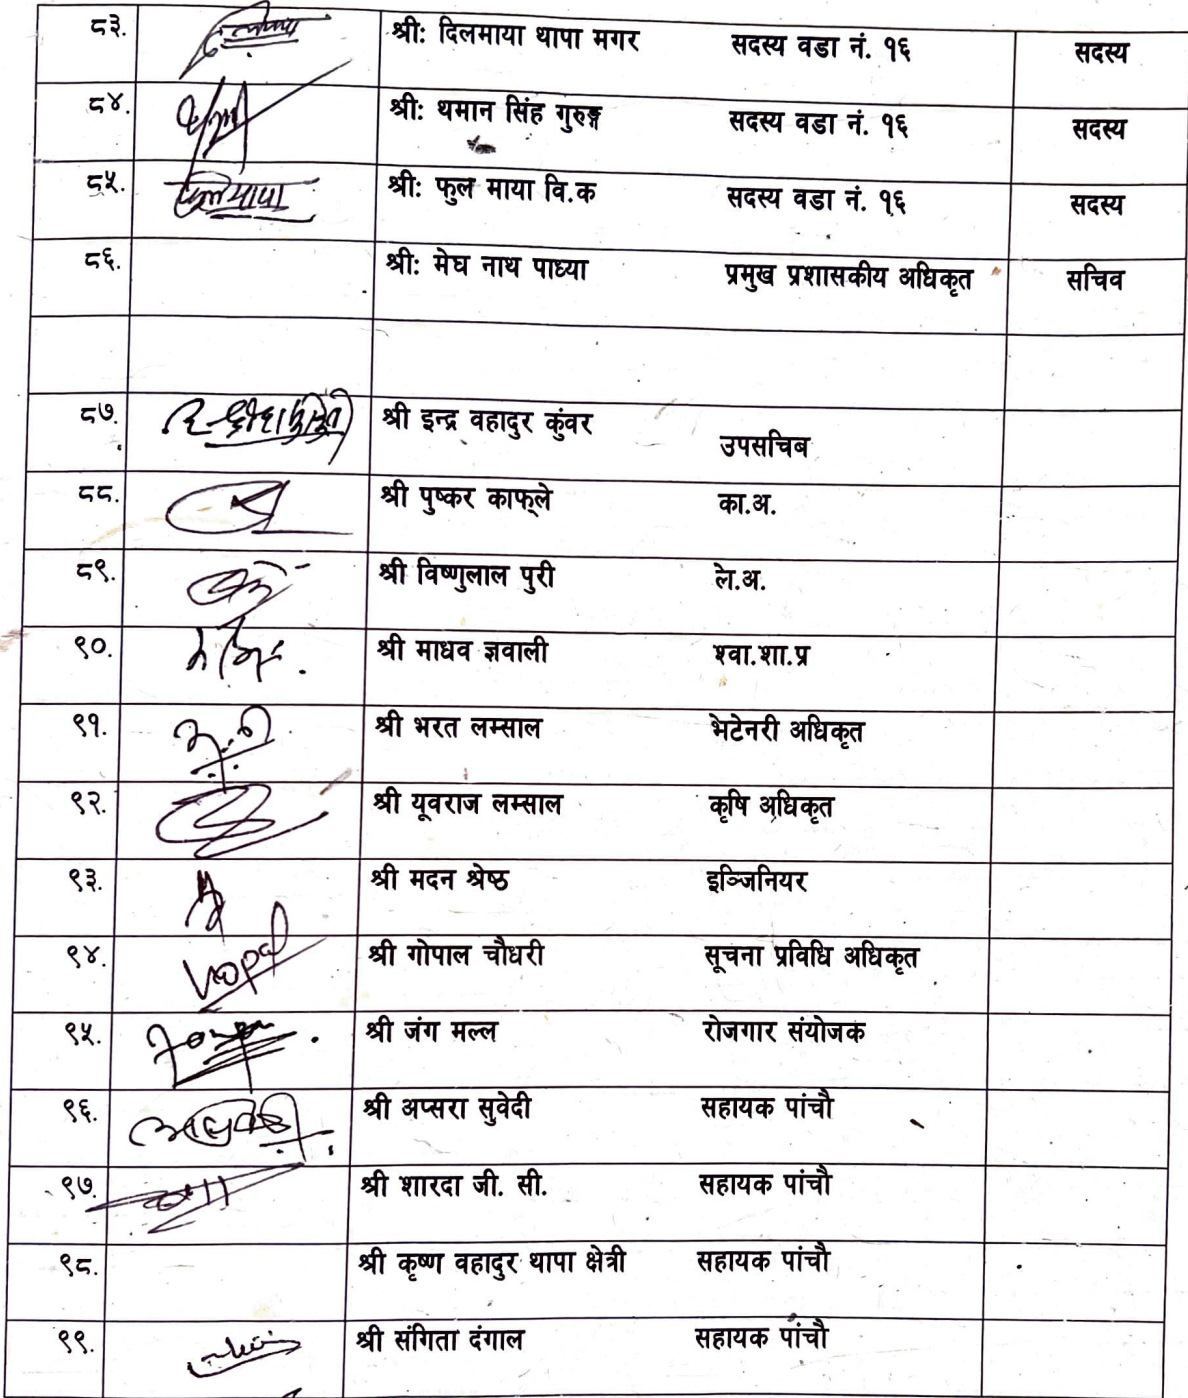 ८३. श्री: दिलमाया थापा मगर सदस्य वडा नं. १६ सदस्य
८४. श्री: थमान सिंह गुरुङ्ग सदस्य वडा नं. १६ सदस्य
८५. श्री: फुल माया वि.क सदस्य वडा नं. १६ सदस्य
८६. श्री: मेघ नाथ पाध्या प्रमुख प्रशासकीय अधिकृत सचिव
८७. श्री इन्द्र वहादुर कुंवर उपसचिब
८८. श्री पुष्कर काफ्ले का.अ.
८९. श्री विष्णुलाल पुरी ले.अ.
९०. श्री माधव ज्ञवाली श्वा.शा.प्र
९१. श्री भरत लम्साल भेटेनरी अधिकृत
९२. श्री यूवराज लम्साल कृषि अधिकृत
९३. श्री मदन श्रेष्ठ इञ्जिनियर
९४. श्री गोपाल चौधरी सूचना प्रविधि अधिकृत
९५. श्री जंग मल्ल रोजगार संयोजक
९६. श्री अप्सरा सुवेदी सहायक पांचौ
९७. श्री शारदा जी. सी. सहायक पांचौ
९८. श्री कृष्ण वहादुर थापा क्षेत्री सहायक पांचौ
९९. श्री संगिता दंगाल सहायक पांचौ